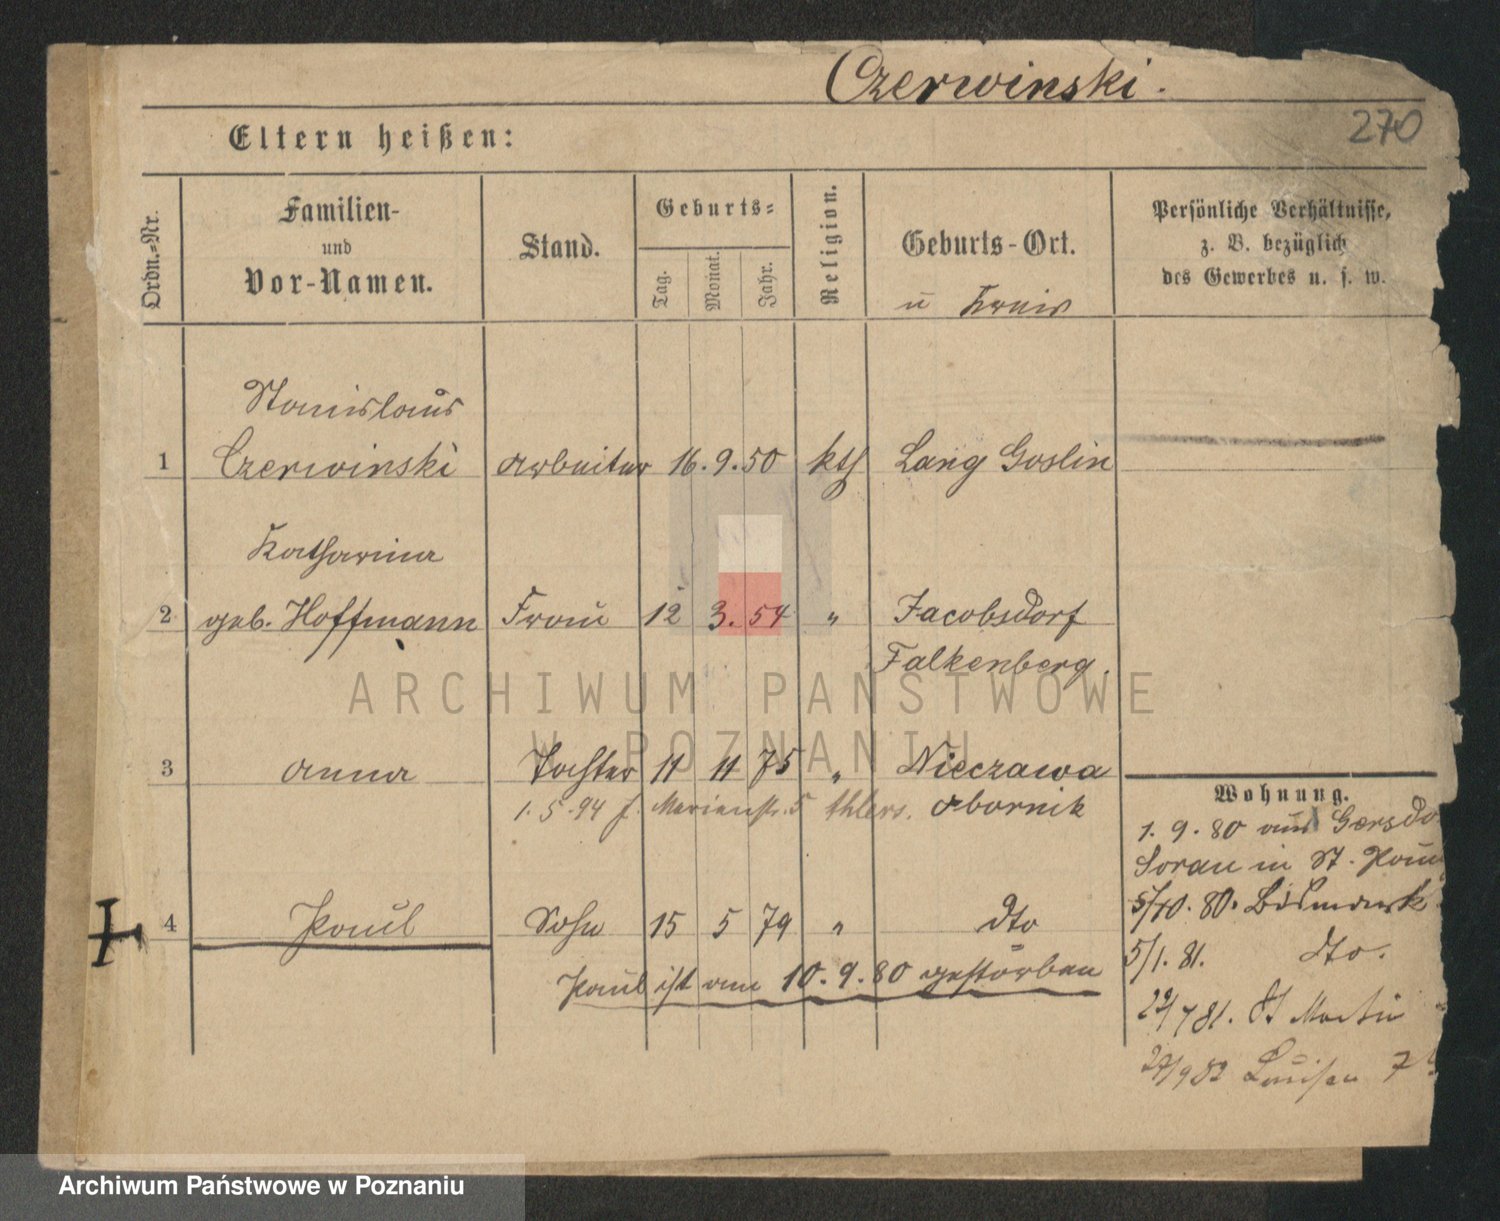 Czerwinski.
270
Eltern heißen:
Ordn.-Nr.
Familien-
und
Vor-Namen.
Stand.
Geburts-
Tag.
Monat.
Jahr.
Religion.
Geburts-Ort.
u Kreis
Persönliche Verhältnisse,
z. B. bezüglich
des Gewerbes u. s. w.
Stanislaus
1 Czerwinski Arbeiter 16. 9. 50 kth Lang Goslin
Katharina
2 geb. Hoffmann Frau 12 3. 54 " Jacobsdorf
Falkenberg.
ARCHIWUM PAŃSTWOWE
W POZNANIU
3 Anna Tochter 11 11 75 " Nieczawa
1. 5. 94 f. Marienstr. 5 Obornik
Wohnung.
1. 9. 80 aus
Sorau in St.
4 Paul Sohn 15 5 79 " dto
5/10. 80. Bismarck
Paul ist am 10. 9. 80 gestorben
5/1. 81. dto.
29/7 81. St Martin
27/9 82 Louisen 7
Archiwum Państwowe w Poznaniu